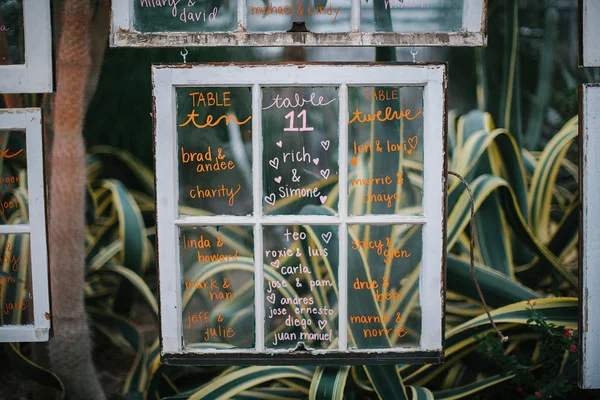 hilary &
david
michael & cindy
TABLE
ten
brad &
andee
charity
linda &
howard
mark &
nan
jeff &
julie
table
11
rich
&
simone
teo
roxie & luis
carla
jose & pam
andres
jose ernesto
diego
juan manuel
TABLE
twelve
lori
&
stacy &
glen
drue &
ben
&
norrie